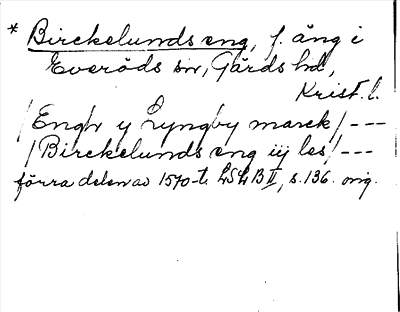 * Birckelunds eng, f. äng i
Everöds sn, Gärds hd,
Krist. l.
/Engh y Lyngby marck/ ---
/Birckelunds eng iij les/ ---
förra delen av 1570-t. LSLB II, s. 136. orig.